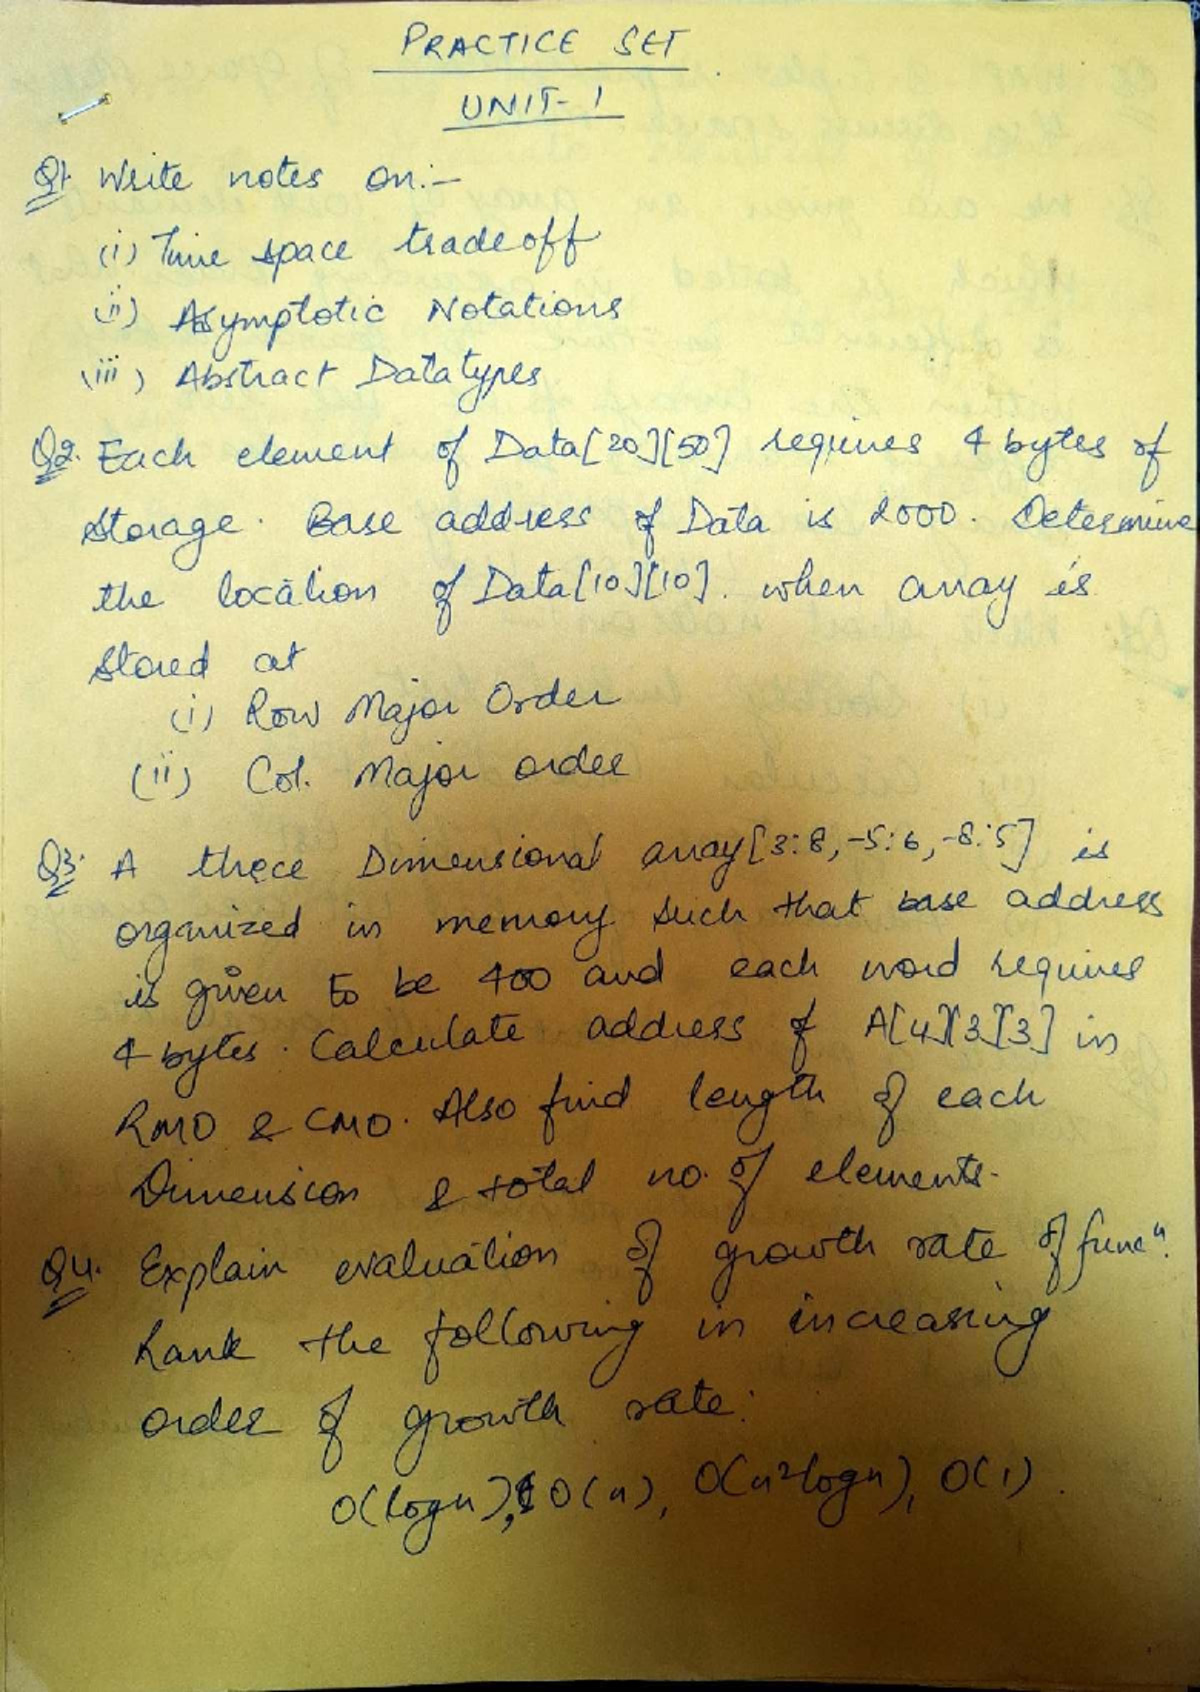 PRACTICE SET
UNIT-1
Q1. Write notes on:-
(i) Time space tradeoff
(ii) Asymptotic Notations
(iii) Abstract Datatypes
Q2. Each element of Data[20][50] requires 4 bytes of
storage. Base address of Data is 2000. Determine
the location of Data[10][10]. when array is
stored at
(i) Row Major Order
(ii) Col. Major order
Q3. A three Dimensional array[3:8,-5:6,-8:5] is
organized in memory such that base address
is given to be 400 and each word requires
4 bytes. Calculate address of A[4][3][3] in
RMO & CMO. Also find length of each
Dimension & total no. of elements.
Q4. Explain evaluation of growth rate of funcⁿ.
Rank the following in increasing
order of growth rate:
O(logn), O(n), O(n²logn), O(1).